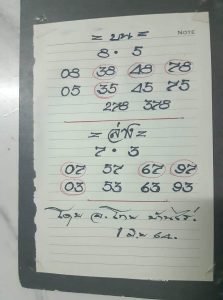 NOTE
= บน =
8 · 5
08 38 48 78
05 35 45 75
278 378
= ล่าง =
7 · 3
07 57 67 97
03 53 63 93
โดย อ.โทย
1 มิย 64.